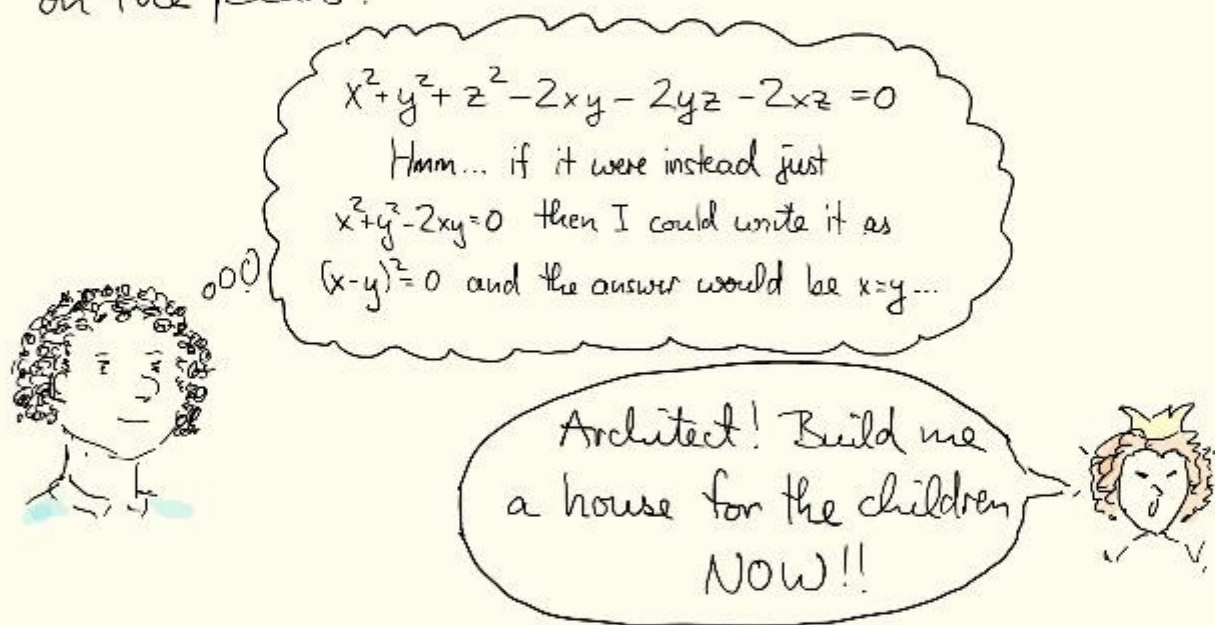 on the
x²+y²+z²-2xy-2yz-2xz=0
Hmm... if it were instead just
x²+y²-2xy=0 then I could write it as
(x-y)²=0 and the answer would be x=y...
Architect! Build me
a house for the children
NOW!!